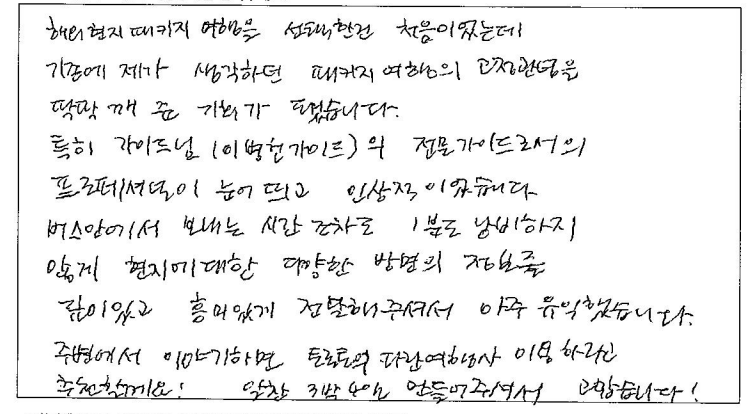 해외현지 패키지 여행을 선택한건 처음이었는데
기존에 제가 생각하던 패키지여행의 고정관념을
딱딱 깨 준 기회가 됐습니다.
특히 가이드님 (이병헌가이드)의 전문가이드로서의
프로페셔널이 눈에 띄고 인상적이었습니다
버스안에서 보내는 시간 조차도 1분도 낭비하지
않게 현지에대한 다양한 방면의 정보를
깊이있고 흥미있게 전달해주셔서 아주 유익했습니다.
주변에서 이야기하면 토론토의 파란여행사 이용하라고
추천할께요! 알찬 3박4일 만들어주셔서 고맙습니다!